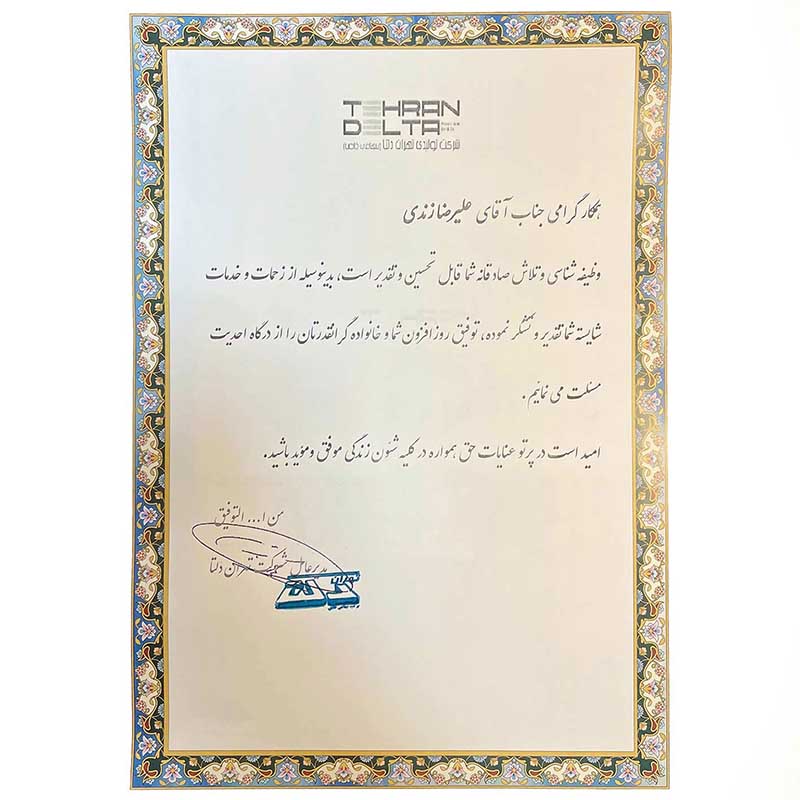 TEHRAN
DELTA
شرکت تولیدی تهران دلتا (سهامی خاص)
همکار گرامی جناب آقای علیرضا زندی
وظیفه شناسی و تلاش صادقانه شما قابل تحسین و تقدیر است، بدینوسیله از زحمات و خدمات
شایسته شما تقدیر و تشکر نموده، توفیق روزافزون شما و خانواده گرانقدرتان را از درگاه احدیت
مسئلت می نمائیم.
امید است در پرتو عنایات حق همواره در کلیه شئون زندگی موفق و مؤید باشید.
من ا... التوفیق
مدیرعامل شرکت تهران دلتا